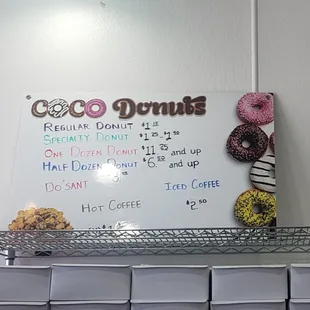 COCO DONUTS
REGULAR DONUT $1.15
SPECIALTY DONUT $1.25 - $1.50
ONE DOZEN DONUT $11.25 and up
HALF DOZEN DONUT $6.50 and up
DO'SANT
ICED COFFEE
HOT COFFEE $2.50